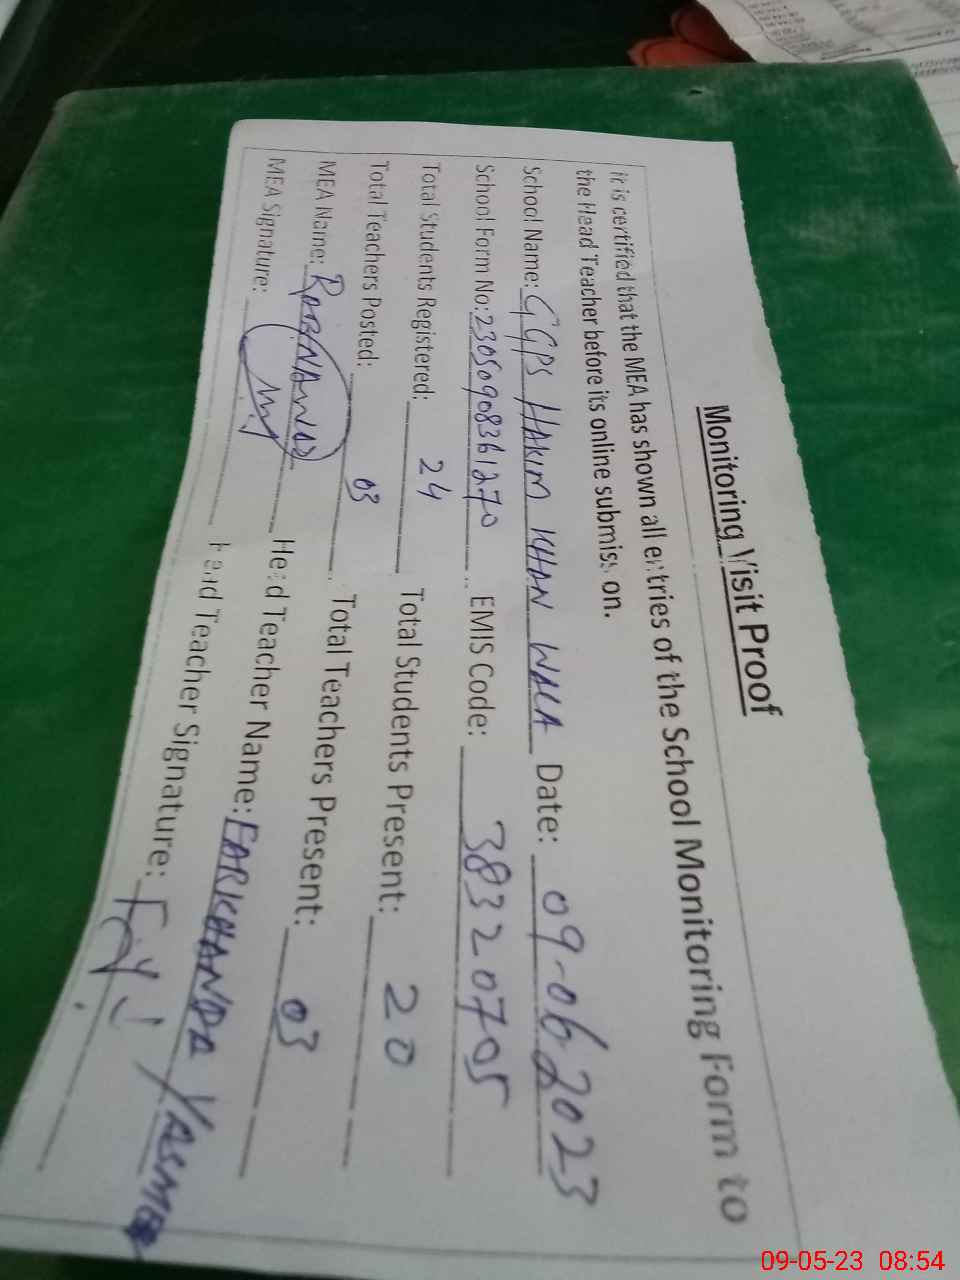 Monitoring Visit Proof
it is certified that the MEA has shown all entries of the School Monitoring Form to
the Head Teacher before its online submission.
School Name: GGPS HAKIM KHAN WALA Date: 09-06 2023
School Form No: 23050908361270 EMIS Code: 38320705
Total Students Registered: 24 Total Students Present: 20
Total Teachers Posted: 03 Total Teachers Present: 03
MEA Name: Head Teacher Name: FARKHANDA YASMEEN
MEA Signature: Head Teacher Signature:
09-05-23 08:54